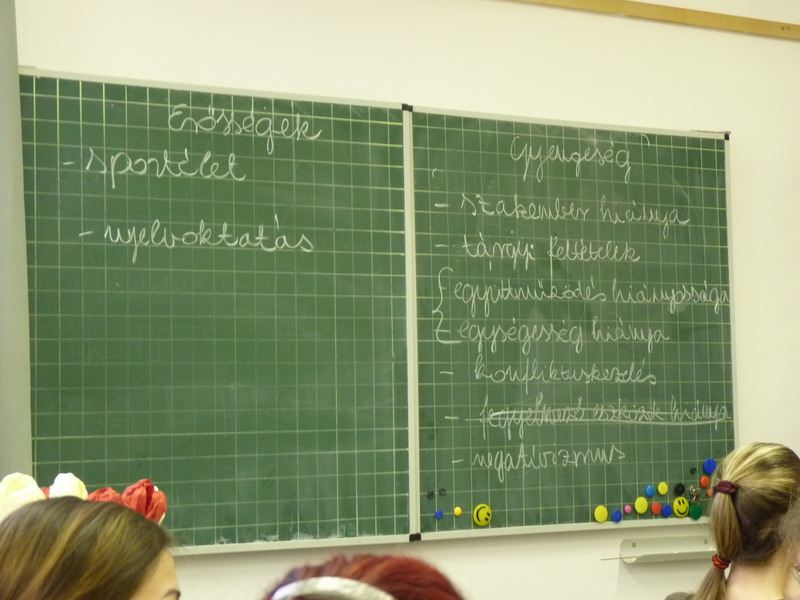 Erősségek
- sportélet
- nyelvoktatás
Gyengeség
- szakember hiánya
- tárgyi feltételek
együttműködés hiányossága
egységesség hiánya
- konfliktuskezelés
- fegyelmező eszközök hiánya
- negatívizmus